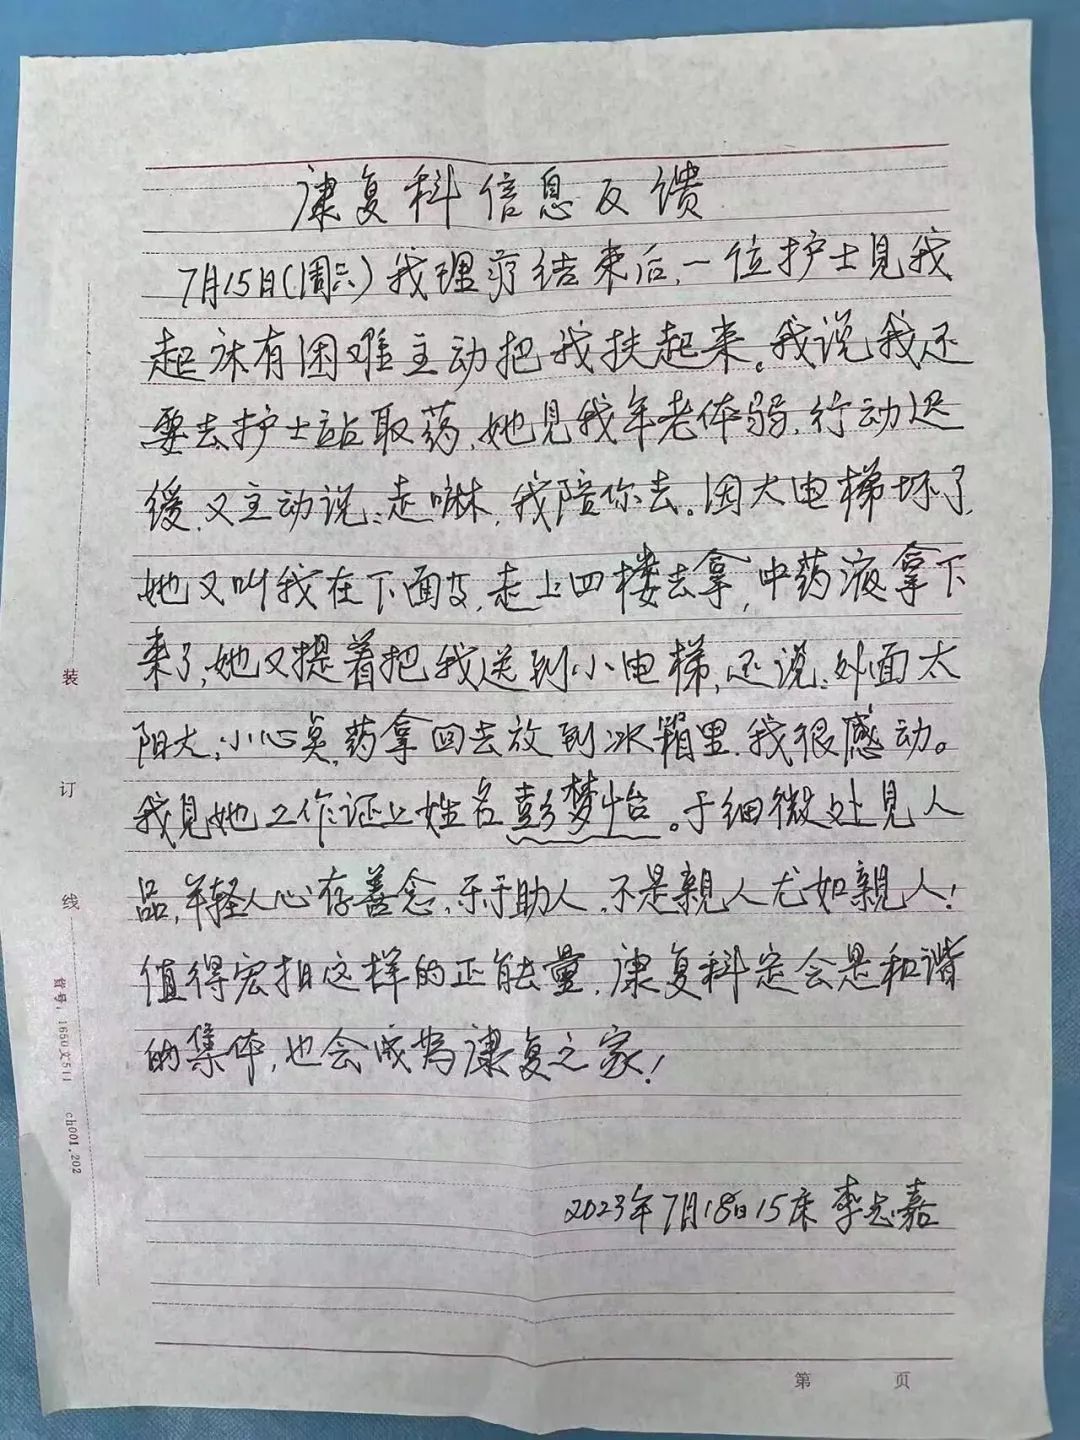 康复科信息反馈
7月15日(周六)我理疗结束后,一位护士见我
起床有困难主动把我扶起来。我说我还
要去护士站取药,她见我年老体弱,行动迟
缓,又主动说:走嘛,我陪你去。因大电梯坏了,
她又叫我在下面等,走上四楼去拿,中药液拿下
来了,她又提着把我送到小电梯,还说:外面太
阳大,小心点,药拿回去放到冰箱里,我很感动。
我见她工作证上姓名彭梦怡。于细微处见人
品,年轻人心存善念,乐于助人,不是親人尤如親人!
值得宏扬这样的正能量,康复科定会是和谐
的集体,也会成为康复之家!
2023年7月18日15床 李志嘉
装
订
线
省号:1650文511 ch001.202
第 页